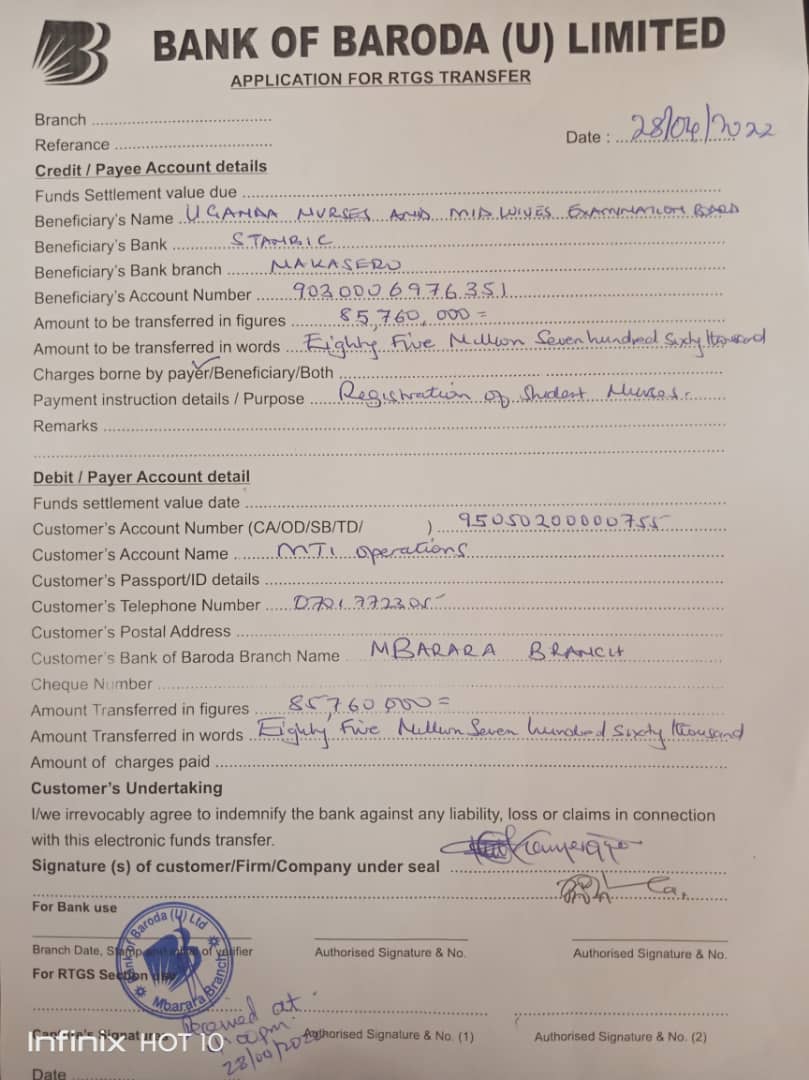 BANK OF BARODA (U) LIMITED
APPLICATION FOR RTGS TRANSFER
Branch
Referance
Date : 28/04/2022
Credit / Payee Account details
Funds Settlement value due
Beneficiary's Name UGANDA NURSES AND MIDWIVES EXAMINATION BOARD
Beneficiary's Bank STANBIC
Beneficiary's Bank branch NAKASERO
Beneficiary's Account Number 9030006976351
Amount to be transferred in figures 85,760,000=
Amount to be transferred in words Eighty Five Million Seven hundred Sixty thousand
Charges borne by payer/Beneficiary/Both
Payment instruction details / Purpose Registration of Student Nurses.
Remarks
Debit / Payer Account detail
Funds settlement value date
Customer's Account Number (CA/OD/SB/TD/ ) 95050200000755
Customer's Account Name MTI operations
Customer's Passport/ID details
Customer's Telephone Number 0701772305
Customer's Postal Address
Customer's Bank of Baroda Branch Name MBARARA BRANCH
Cheque Number
Amount Transferred in figures 85,760,000=
Amount Transferred in words Eighty Five Million Seven hundred Sixty thousand
Amount of charges paid
Customer's Undertaking
I/we irrevocably agree to indemnify the bank against any liability, loss or claims in connection
with this electronic funds transfer.
Signature (s) of customer/Firm/Company under seal
For Bank use
Bank of Baroda (U) Ltd
Mbarara Branch
Branch Date, Stamp of verifier
Authorised Signature & No.
Authorised Signature & No.
For RTGS Section
Received at
Authorised Signature & No. (1)
Authorised Signature & No. (2)
Infinix HOT 10
Date